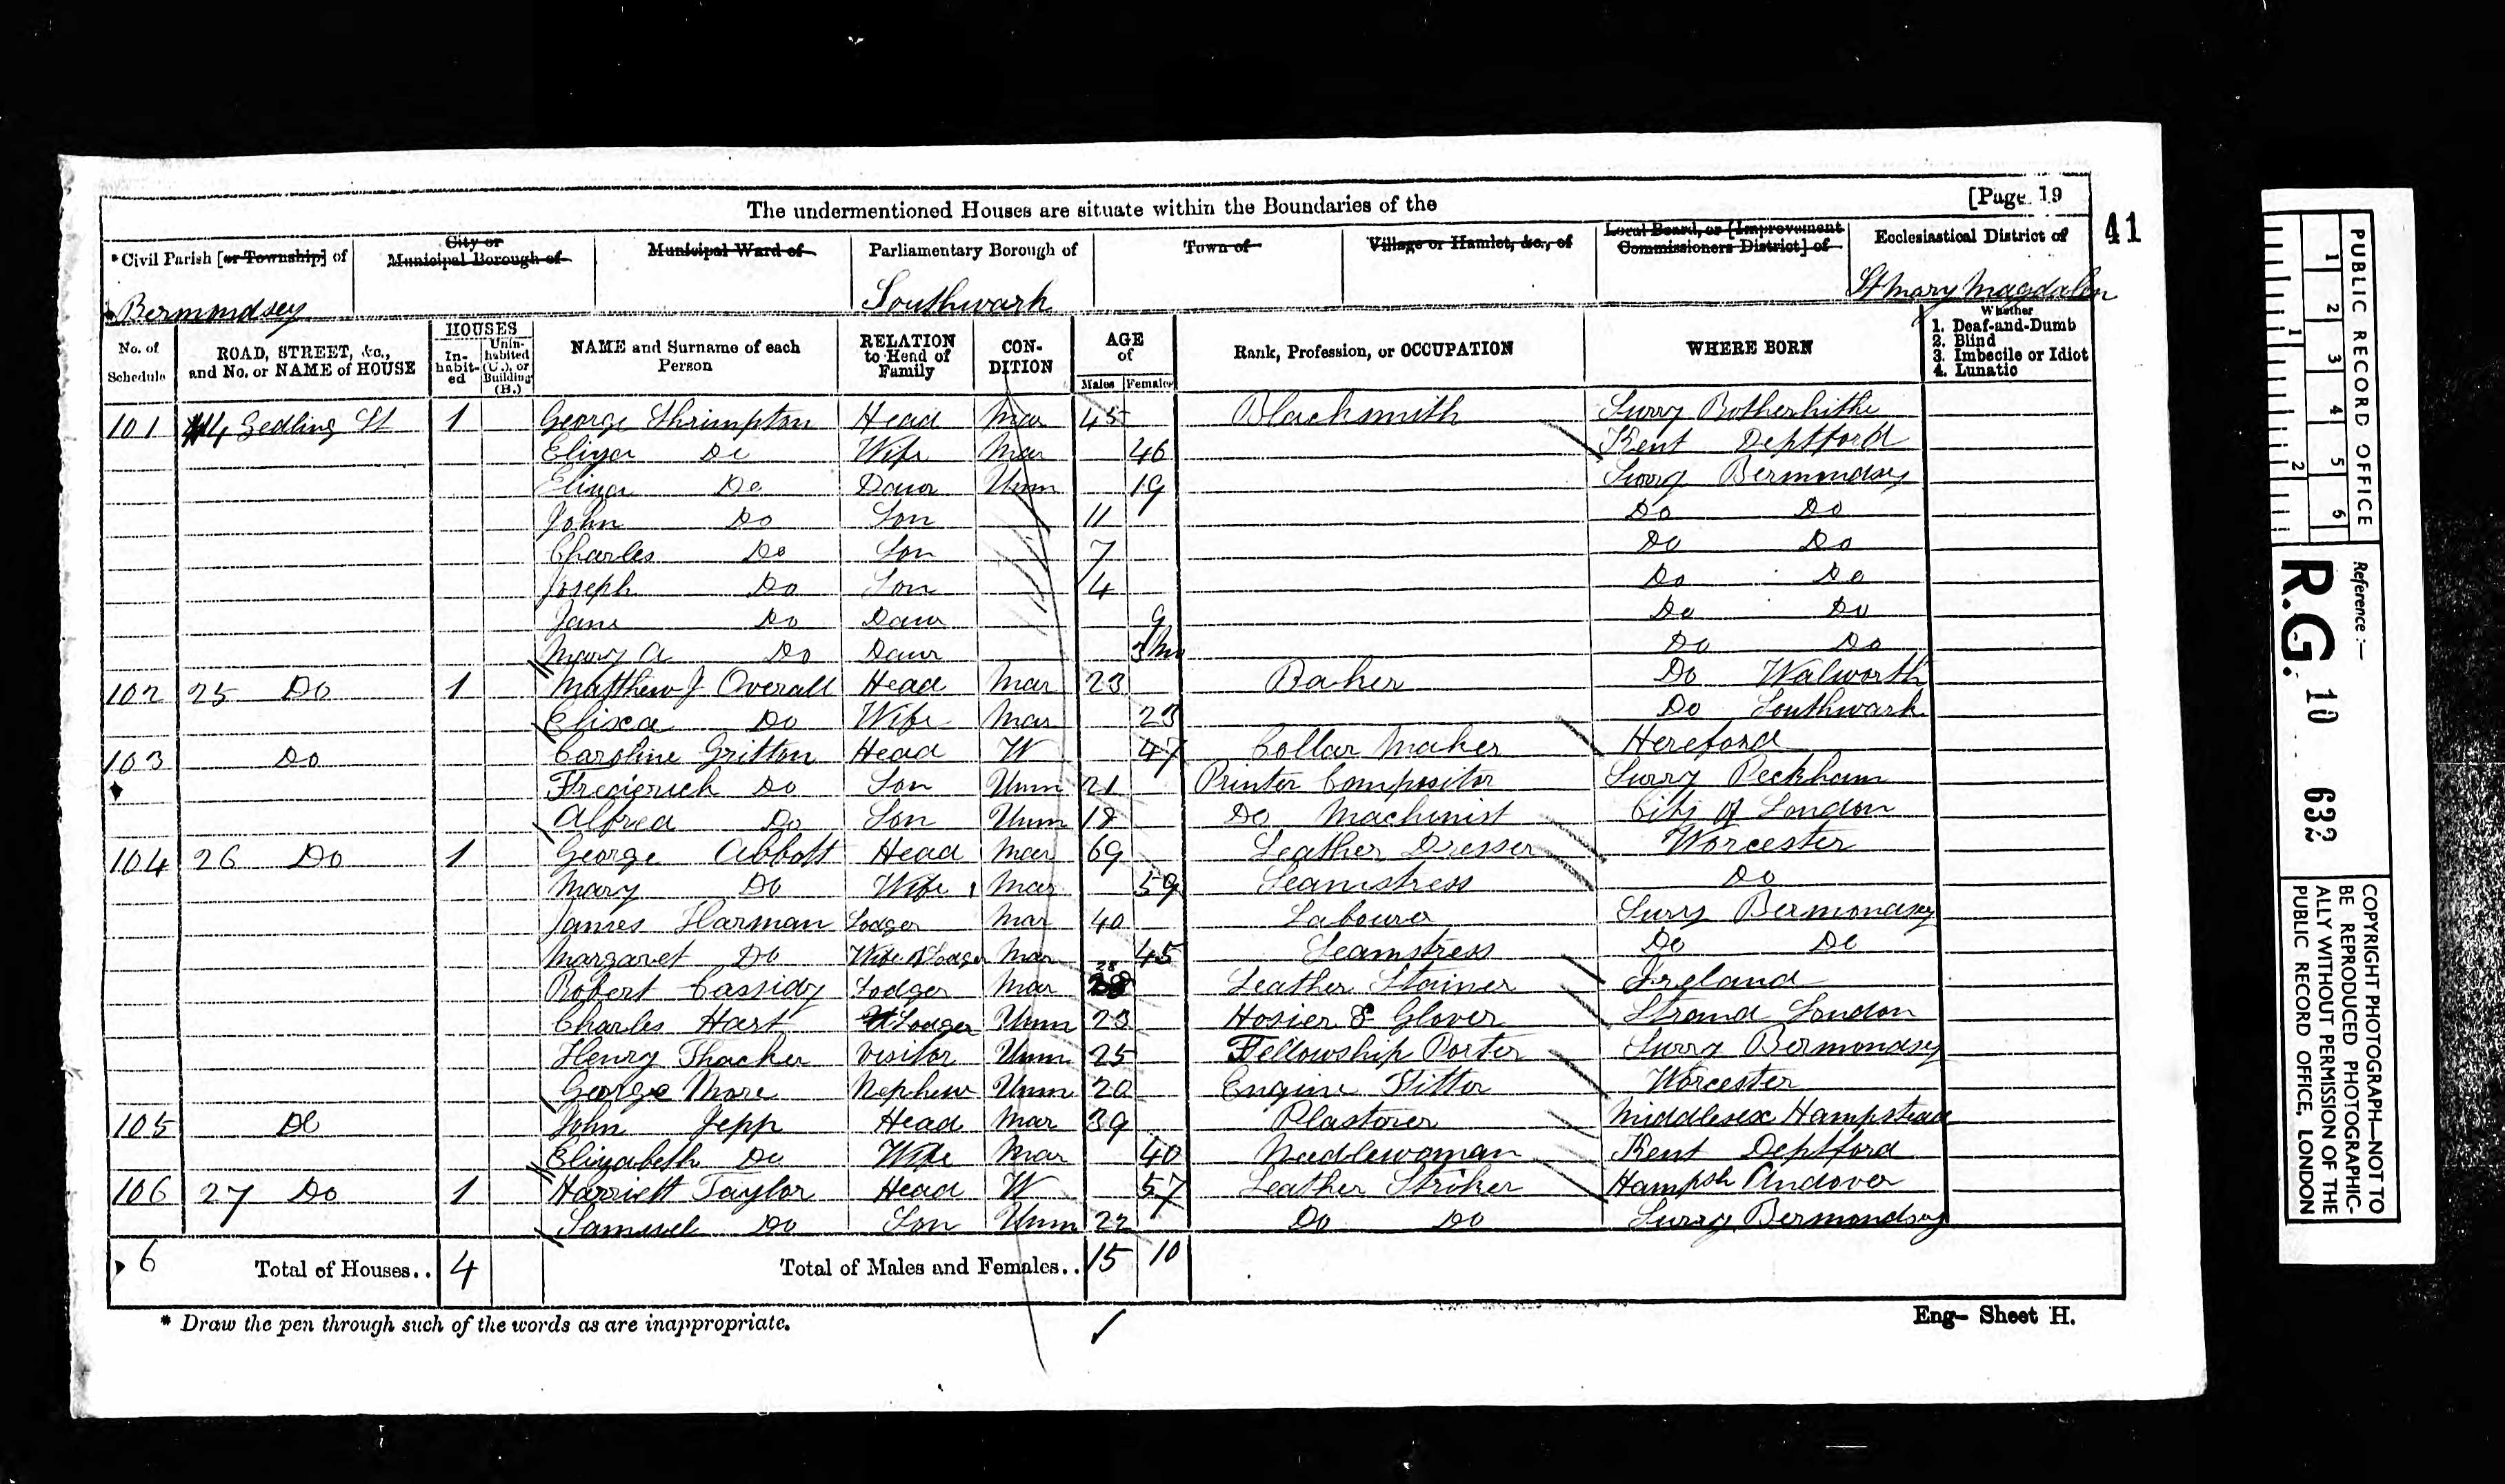 [Page 19
41
The undermentioned Houses are situate within the Boundaries of the
*Civil Parish [or Township] of City or Municipal Borough of Municipal Ward of Parliamentary Borough of Town of Village or Hamlet, &c., of Local Board, or [Improvement Commissioners District] of Ecclesiastical District of
Bermondsey Southwark St Mary Magdalen
No. of Schedule ROAD, STREET, &c., and No. or NAME of HOUSE HOUSES In-habit-ed Unin-habited (U.), or Building (B.) NAME and Surname of each Person RELATION to Head of Family CON-DITION AGE of Males Females Rank, Profession, or OCCUPATION WHERE BORN Whether 1. Deaf-and-Dumb 2. Blind 3. Imbecile or Idiot 4. Lunatic
101 Gedling St 1 George Shrimpton Head Mar 45 Blacksmith Surry Rotherhithe
Eliza Do Wife Mar 46 Kent Deptford
Eliza Do Daur Unm 19 Surry Bermondsey
John Do Son 11 Do Do
Charles Do Son 7 Do Do
Joseph Do Son 4 Do Do
Jane Do Daur 9 Do Do
Mary A Do Daur 3 Mo Do Do
102 25 Do 1 Matthew J Overall Head Mar 23 Baker Do Walworth
Do Wife Mar 23 Do Southwark
103 Do Caroline Gritton Head W 47 Collar Maker Hereford
Frederick Do Son Unm 21 Printer Compositor Surry Peckham
Alfred Do Son Unm 18 Do Machinist City of London
104 26 Do 1 George Abbott Head Mar 69 Leather Dresser Worcester
Mary Do Wife Mar 59 Seamstress Do
James Harman Lodger Mar 40 Labourer Surry Bermondsey
Margaret Do Wife of Lodger Mar 45 Seamstress Do Do
Robert Cassidy Lodger Mar 28 Leather Stainer Ireland
Charles Hart Lodger Unm 23 Hosier & Glover Strand London
Henry Thacker Visitor Unm 25 Fellowship Porter Surry Bermondsey
George More Nephew Unm 20 Engine Fitter Worcester
105 Do John Jepp Head Mar 39 Plasterer Middlesex Hampstead
Elizabeth Do Wife Mar 40 Needlewoman Kent Deptford
106 27 Do 1 Harriett Taylor Head W 57 Leather Striker Hampsh Andover
Samuel Do Son Unm 22 Do Do Surry Bermondsey
6 Total of Houses.. 4 Total of Males and Females.. 15 10
* Draw the pen through such of the words as are inappropriate.
Eng— Sheet H.
PUBLIC RECORD OFFICE
1 2 3 4 5 6
1 2
Reference:—
R.G. 10 632
COPYRIGHT PHOTOGRAPH—NOT TO
BE REPRODUCED PHOTOGRAPHIC-
ALLY WITHOUT PERMISSION OF THE
PUBLIC RECORD OFFICE, LONDON